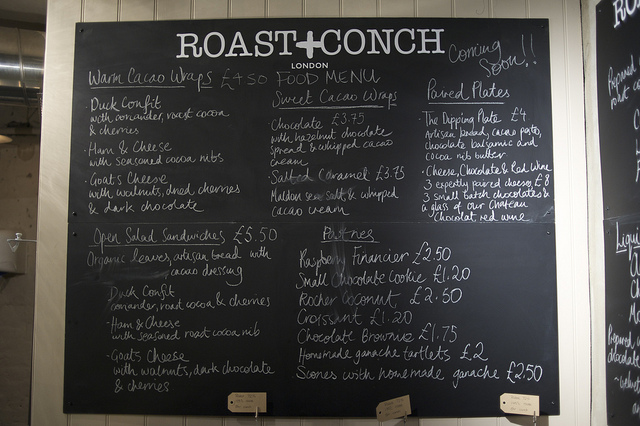 ROAST+CONCH
LONDON
Coming
Soon!!
Warm Cacao Wraps £4.50 FOOD MENU
Duck Confit
with coriander, roast cocoa
& cherries
Ham & Cheese
with seasoned cocoa nibs
Goat's Cheese
with walnuts, dried cherries
& dark chocolate
Sweet Cacao Wraps
Chocolate £3.75
with hazelnut chocolate
spread & whipped cacao
cream
Salted Caramel £3.75
Maldon sea salt & whipped
cacao cream
Paired Plates
The Dipping Plate £4
Artisan bread, cacao pates,
chocolate balsamic and
cocoa nib butter
Cheese, Chocolate & Red Wine
3 expertly paired cheeses £8
3 small batch chocolates &
a glass of our Chateau
Chocolat red wine
Open Salad Sandwiches £5.50
Organic leaves, artisan bread with
cacao dressing
Duck Confit
coriander, roast cocoa & cherries
Ham & Cheese
with seasoned roast cocoa nib
Goat's Cheese
with walnuts, dark chocolate
& cherries
Raspberry Financier £2.50
Small Chocolate Cookie £1.20
Rocher Coconut £2.50
Croissant £1.20
Chocolate Brownie £1.75
Homemade ganache tartlets £2
Scones with homemade ganache £2.50